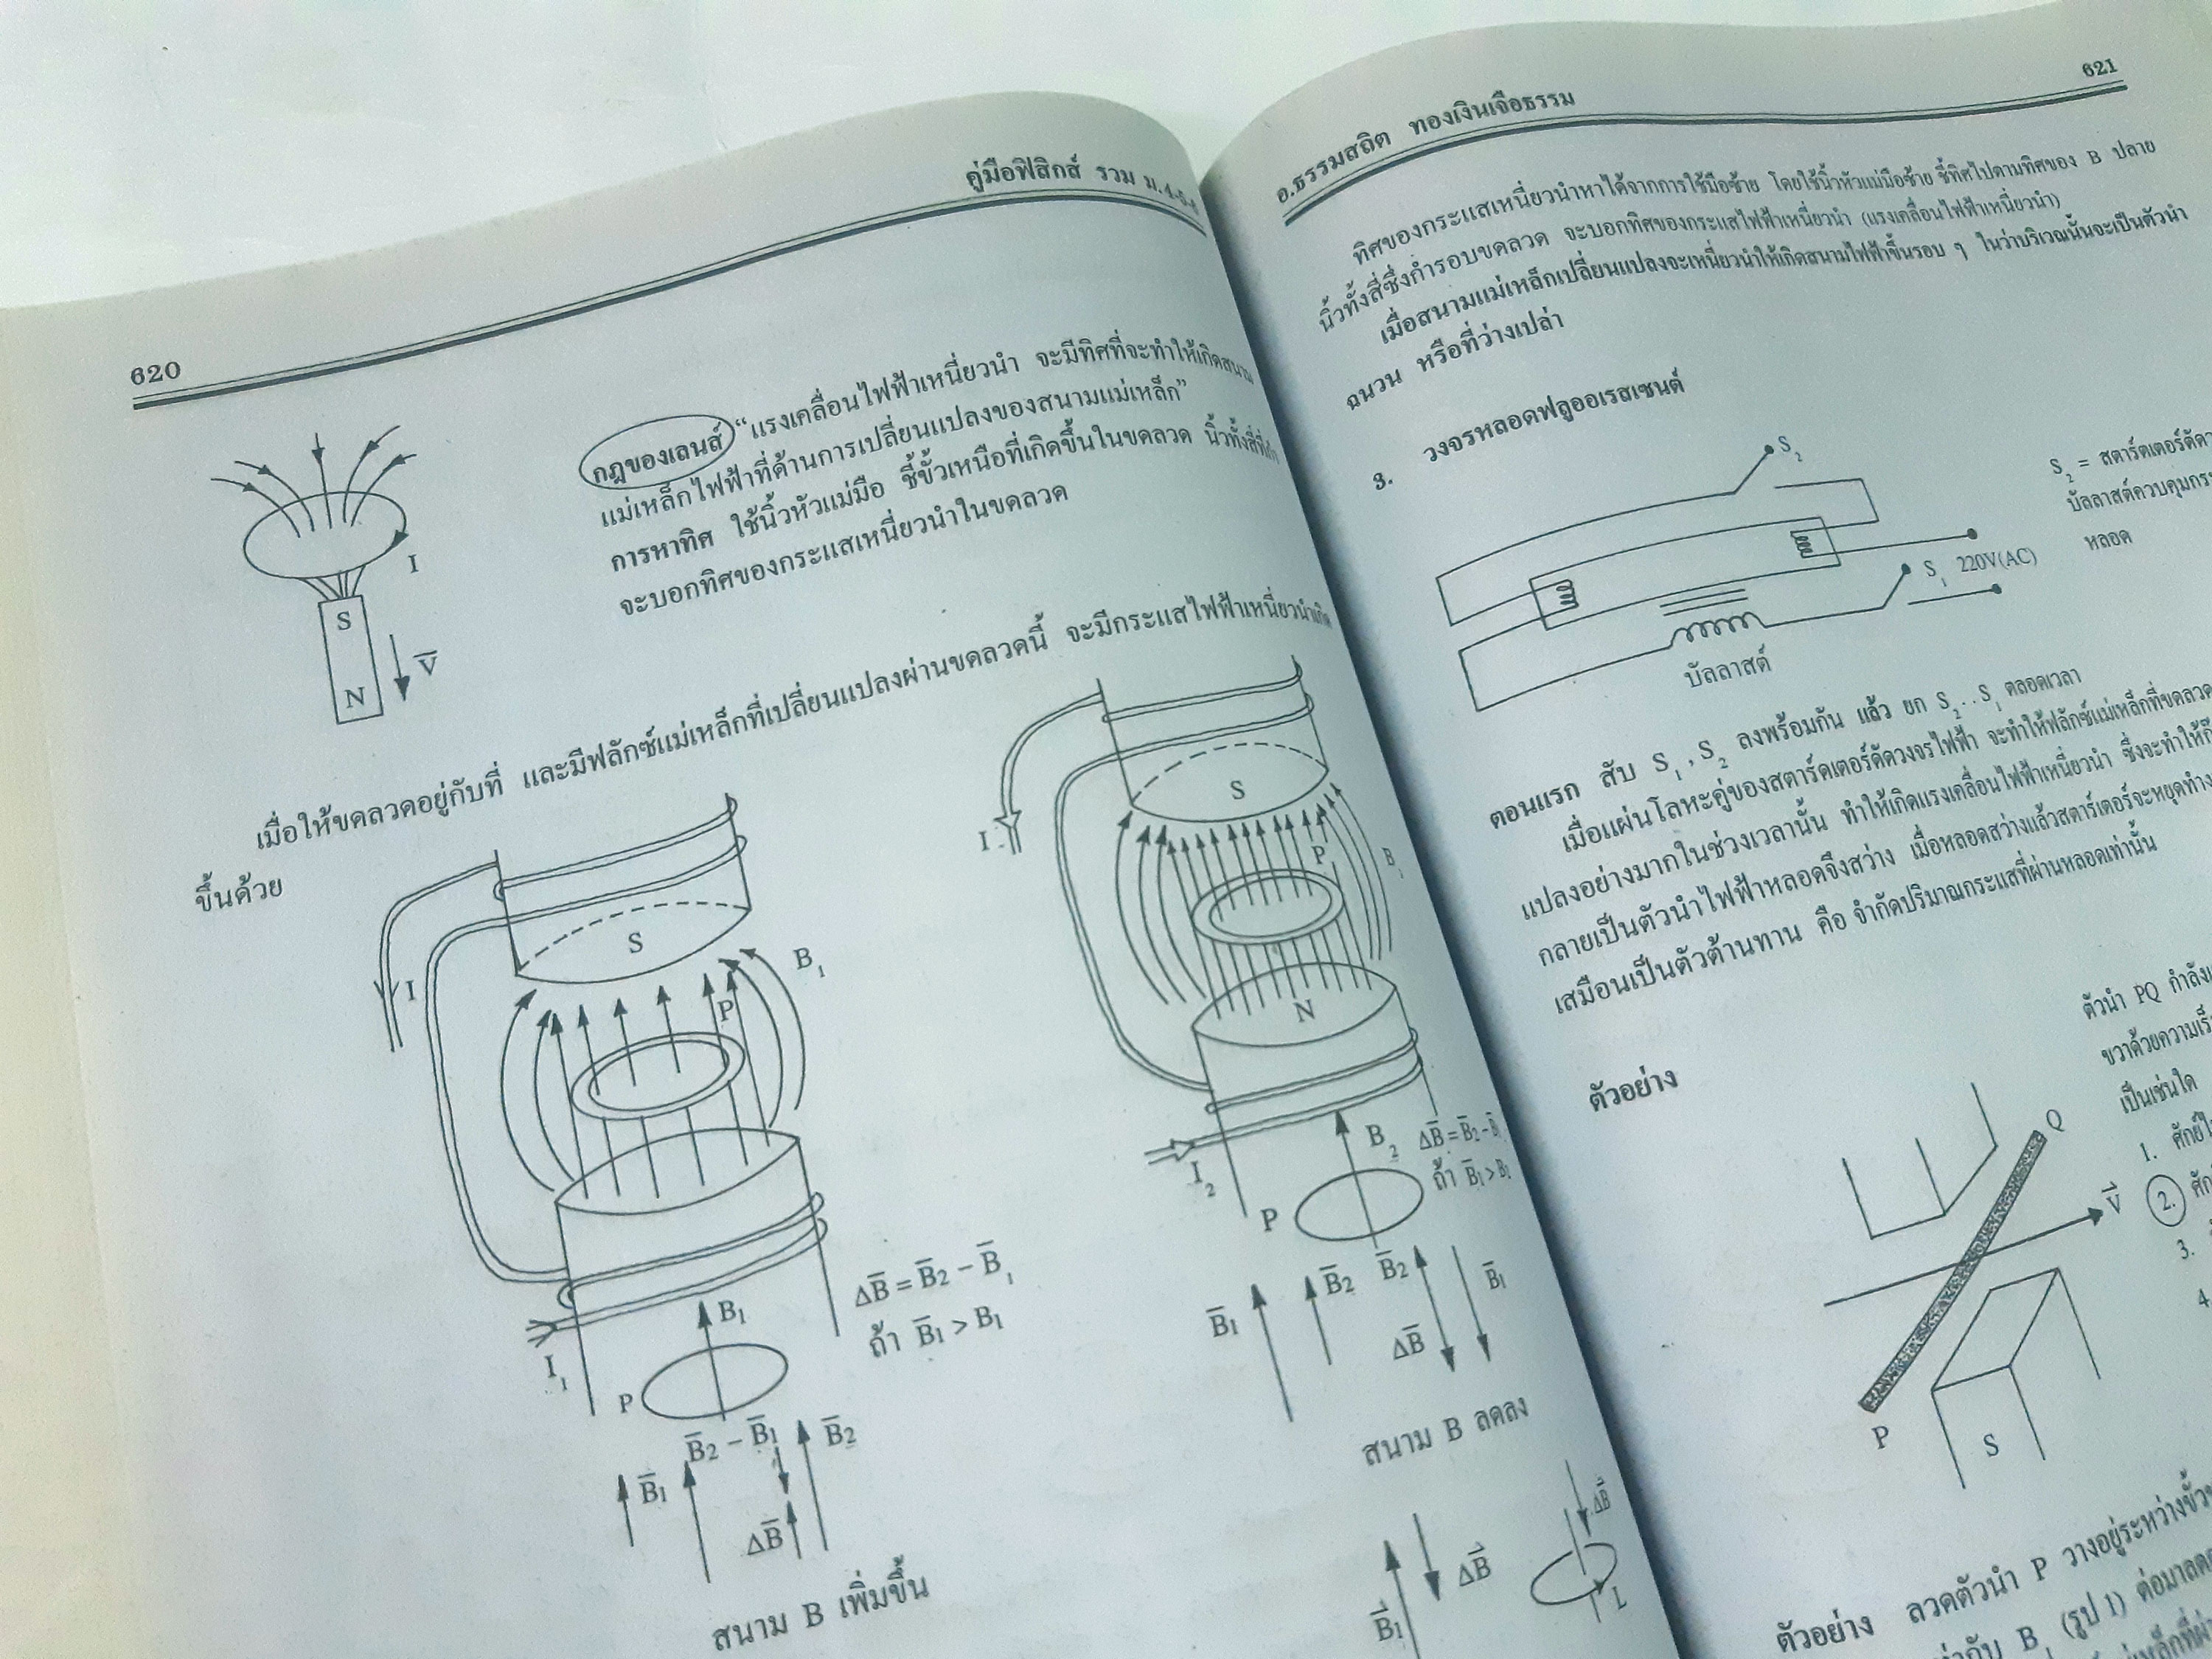 620
คู่มือฟิสิกส์ รวม ม.4-5-6
กฎของเลนส์ “แรงเคลื่อนไฟฟ้าเหนี่ยวนำ จะมีทิศที่จะทำให้เกิดสนาม
แม่เหล็กไฟฟ้าที่ต้านการเปลี่ยนแปลงของสนามแม่เหล็ก”
การหาทิศ ใช้นิ้วหัวแม่มือ ชี้ขั้วเหนือที่เกิดขึ้นในขดลวด นิ้วทั้งสี่ที่
จะบอกทิศของกระแสเหนี่ยวนำในขดลวด
I
S
N
V̄
เมื่อให้ขดลวดอยู่กับที่ และมีฟลักซ์แม่เหล็กที่เปลี่ยนแปลงผ่านขดลวดนี้ จะมีกระแสไฟฟ้าเหนี่ยวนำเกิด
ขึ้นด้วย
S
I
B₁
P
I₁
B₁
P
ΔB̄ = B̄₂ − B̄₁
ถ้า B̄₁ > B₁
B̄₁
B̄₂ − B̄₁
B̄₂
ΔB̄
สนาม B เพิ่มขึ้น
S
I
P
B
N
I₂
B₂
ΔB̄ = B̄₂ −
ถ้า B̄₁ >
P
B̄₁
B̄₂
B̄₂
B̄₁
ΔB̄
สนาม B ลดลง
B̄₁
ΔB̄
ΔB̄
อ.ธรรมสถิต ทองเงินเจือธรรม
621
ทิศของกระแสเหนี่ยวนำหาได้จากการใช้มือซ้าย โดยใช้นิ้วหัวแม่มือซ้าย ชี้ทิศไปตามทิศของ B ปลาย
นิ้วทั้งสี่ซึ่งกำรอบขดลวด จะบอกทิศของกระแสไฟฟ้าเหนี่ยวนำ (แรงเคลื่อนไฟฟ้าเหนี่ยวนำ)
เมื่อสนามแม่เหล็กเปลี่ยนแปลงจะเหนี่ยวนำให้เกิดสนามไฟฟ้าขึ้นรอบ ๆ ในว่าบริเวณนั้นจะเป็นตัวนำ
ฉนวน หรือที่ว่างเปล่า
3. วงจรหลอดฟลูออเรสเซนต์
S₂
S₁ 220V(AC)
บัลลาสต์
S₂ = สตาร์ตเตอร์ตัด
บัลลาสต์ควบคุม
หลอด
ตอนแรก สับ S₁, S₂ ลงพร้อมกัน แล้ว ยก S₂ . . S₁ ตลอดเวลา
เมื่อแผ่นโลหะคู่ของสตาร์ตเตอร์ตัดวงจรไฟฟ้า จะทำให้ฟลักซ์แม่เหล็กที่ขดลวด
แปลงอย่างมากในช่วงเวลานั้น ทำให้เกิดแรงเคลื่อนไฟฟ้าเหนี่ยวนำ ซึ่งจะทำให้
กลายเป็นตัวนำไฟฟ้าหลอดจึงสว่าง เมื่อหลอดสว่างแล้วสตาร์เตอร์จะหยุด
เสมือนเป็นตัวต้านทาน คือ จำกัดปริมาณกระแสที่ผ่านหลอดเท่านั้น
ตัวอย่าง
ตัวนำ PQ กำลัง
ขวาด้วยความเร็ว
เป็นเช่นใด
1.
2.
3.
4.
Q
V⃗
P
S
ตัวอย่าง ลวดตัวนำ P วางอยู่ระหว่าง
B₁ (รูป 1)